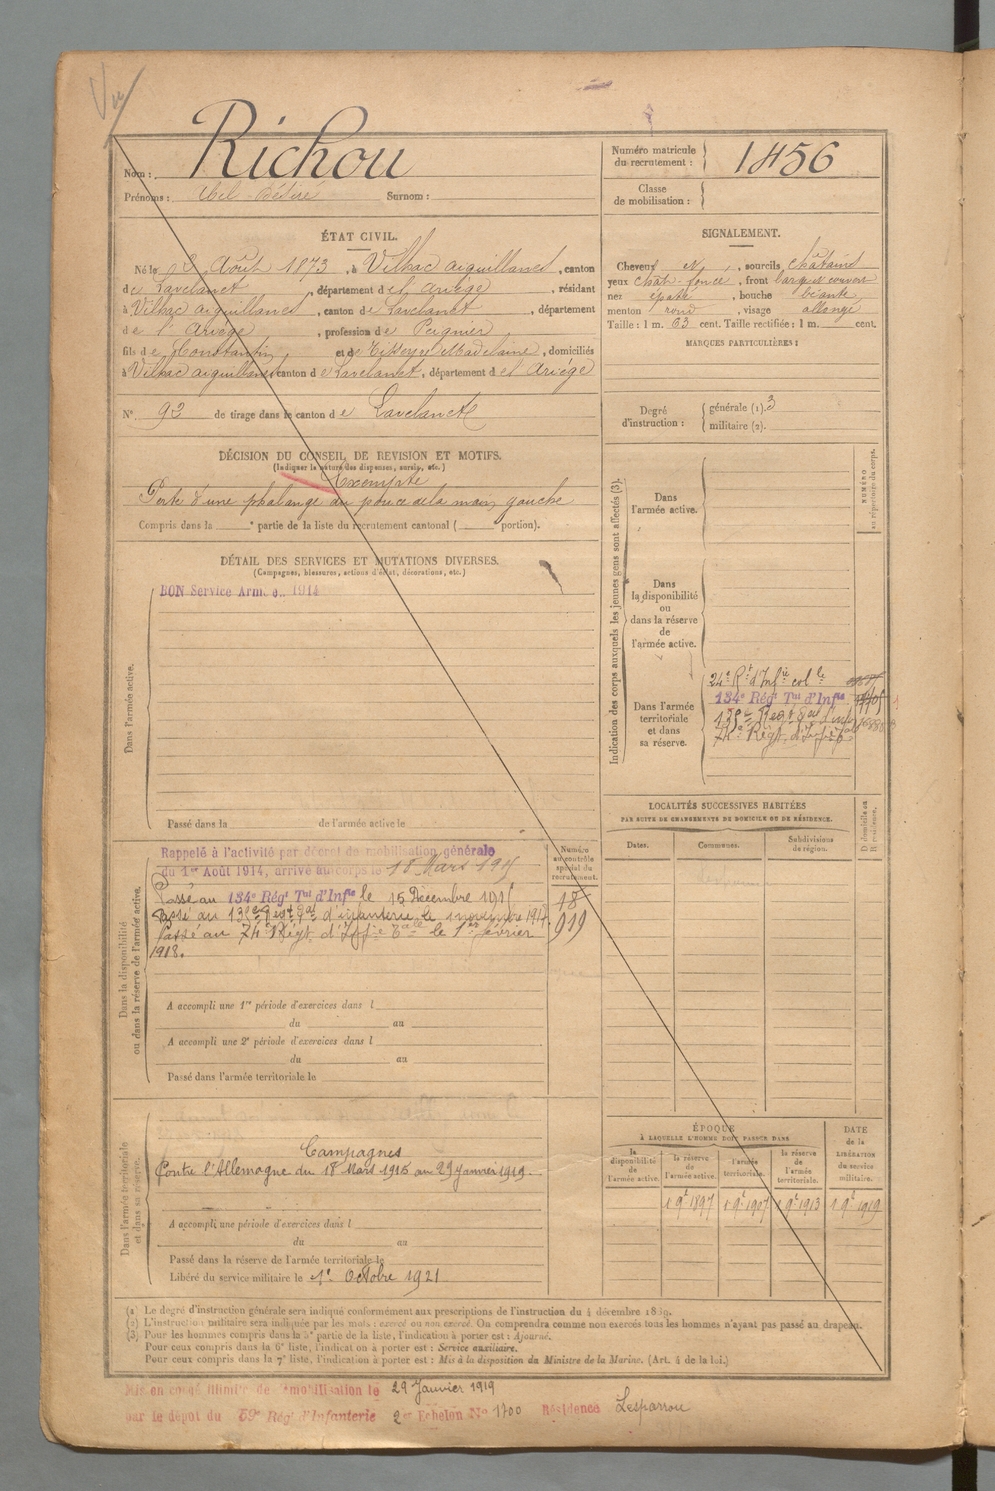 Vu
Nom : Richou
Prénoms : Abel Désiré Surnom :
Numéro matricule du recrutement : 1456
Classe de mobilisation :
ÉTAT CIVIL.
Né le 2 Août 1873, à Villhac aiguillanes, canton
de Lavelanet, département de l'Ariège, résidant
à Vilhac aiguillanes, canton de Lavelanet, département
de l'Ariège, profession de Peignier
fils de Constantin et de Madelaine, domiciliés
à Vilhac aiguillanes canton de Lavelanet, département de l'Ariège
N° 92 de tirage dans le canton de Lavelanet
SIGNALEMENT.
Cheveux et, sourcils châtains
yeux chât. foncé, front large et couvert
nez épaté, bouche béante
menton rond, visage allongé
Taille : 1 m. 63 cent. Taille rectifiée : 1 m. cent.
MARQUES PARTICULIÈRES :
Degré d'instruction : générale (1). 3
militaire (2).
DÉCISION DU CONSEIL DE REVISION ET MOTIFS.
(Indiquer la nature des dispenses, sursis, etc.)
Exempté
Perte d'une phalange du pouce de la main gauche
Compris dans la e partie de la liste du recrutement cantonal ( e portion).
DÉTAIL DES SERVICES ET MUTATIONS DIVERSES.
(Campagnes, blessures, actions d'éclat, décorations, etc.)
Dans l'armée active.
BON Service Armée. 1914
Passé dans la de l'armée active le
Indication des corps auxquels les jeunes gens sont affectés (3).
NUMÉRO au répertoire du corps.
Dans l'armée active.
Dans la disponibilité ou dans la réserve de l'armée active.
Dans l'armée territoriale et dans sa réserve.
24e Rt d'Infie colle
134e Régt Tal d'Infie
135e Regt d'Inf
74e Régt d'Infie
LOCALITÉS SUCCESSIVES HABITÉES
PAR SUITE DE CHANGEMENTS DE DOMICILE OU DE RÉSIDENCE.
Dates. Communes. Subdivisions de région. D domicile ou R résidence.
Dans la disponibilité ou dans la réserve de l'armée active.
Numéro au contrôle spécial du recrutement.
Rappelé à l'activité par décret de mobilisation générale
du 1er Août 1914, arrivé au corps le 18 Mars 1915
Passé au 134e Régt Tal d'Infie le 15 Décembre 1915
Passé au 135e Regt d'infanterie le 1 novembre 1917
Passé au 74e Régt d'Infie le 1er février
1918.
18
919
A accompli une 1re période d'exercices dans l
du au
A accompli une 2e période d'exercices dans l
du au
Passé dans l'armée territoriale le
Dans l'armée territoriale et dans sa réserve.
Campagnes
Contre l'Allemagne du 18 Mars 1915 au 29 janvier 1919.
A accompli une période d'exercices dans l
du au
Passé dans la réserve de l'armée territoriale le
Libéré du service militaire le 1er Octobre 1921
ÉPOQUE
À LAQUELLE L'HOMME DOIT PASSER DANS
DATE de la LIBÉRATION du service militaire.
la disponibilité de l'armée active.
la réserve de l'armée active.
l'armée territoriale.
la réserve de l'armée territoriale.
1 9t 1897
1 9t 1907
1 9t 1913
1 9t 1919
(1) Le degré d'instruction générale sera indiqué conformément aux prescriptions de l'instruction du 4 décembre 1889.
(2) L'instruction militaire sera indiquée par les mots : exercé ou non exercé. On comprendra comme non exercés tous les hommes n'ayant pas passé au drapeau.
(3) Pour les hommes compris dans la 5e partie de la liste, l'indication à porter est : Ajourné.
Pour ceux compris dans la 6e liste, l'indication à porter est : Service auxiliaire.
Pour ceux compris dans la 7e liste, l'indication à porter est : Mis à la disposition du Ministre de la Marine. (Art. 4 de la loi.)
Mis en congé illimité de démobilisation le 29 Janvier 1919
par le dépôt du 59e Régt d'Infanterie 2e Echelon N° 1700 Résidence Lesparrou